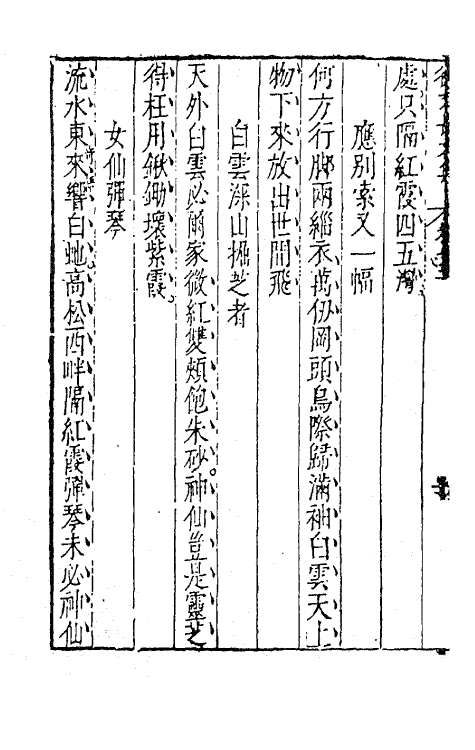 處只隔紅霞四五灣
應別索又一幅
何方行脚兩緇衣萬仞岡頭鳥際歸滿袖白雲天上
物下來放出世間飛
白雲深山掘芝者
天外白雲必爾家微紅雙頰飽朱砂神仙豈是靈芝
得枉用鍬鋤壞紫霞
女仙彈琴
流水東來響白虵高松西畔隔紅霞彈琴未必神仙